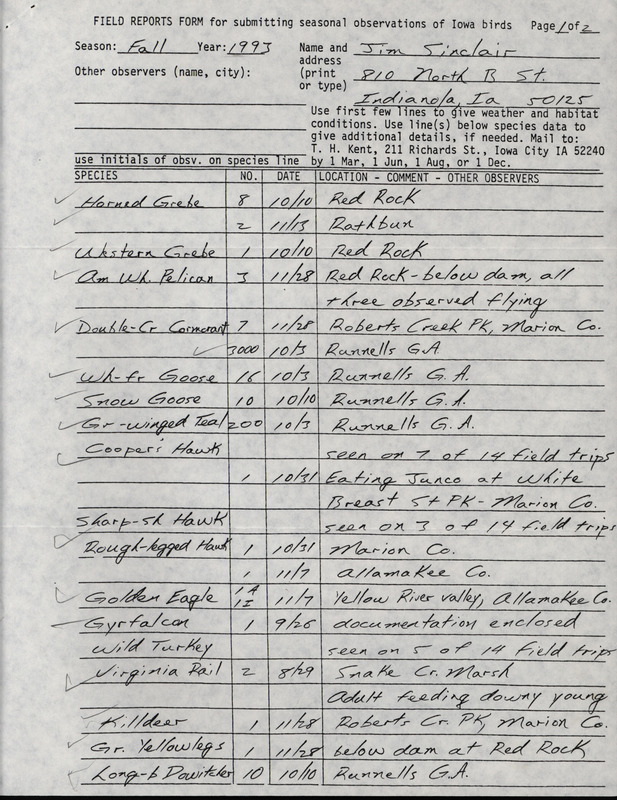 FIELD REPORTS FORM for submitting seasonal observations of Iowa birds Page 1 of 2
Season: Fall Year: 1993 Name and address (print or type) Jim Sinclair
Other observers (name, city): 810 North B St.
Indianola, Ia 50125
Use first few lines to give weather and habitat
conditions. Use line(s) below species data to
give additional details, if needed. Mail to:
T. H. Kent, 211 Richards St., Iowa City IA 52240
use initials of obsv. on species line by 1 Mar, 1 Jun, 1 Aug, or 1 Dec.
SPECIES NO. DATE LOCATION - COMMENT - OTHER OBSERVERS
Horned Grebe 8 10/10 Red Rock
2 11/13 Rathbun
Western Grebe 1 10/10 Red Rock
Am Wh. Pelican 3 11/28 Red Rock - below dam, all
three observed flying
Double-Cr Cormorant 7 11/28 Roberts Creek PK, Marion Co.
3000 10/3 Runnells G.A
Wh-fr Goose 16 10/3 Runnells G.A.
Snow Goose 10 10/10 Runnells G.A.
Gr-winged Teal 200 10/3 Runnells G.A.
Cooper's Hawk seen on 7 of 14 field trips
1 10/31 Eating Junco at White
Breast St PK - Marion Co.
Sharp-sh Hawk seen on 3 of 14 field trips
Rough-legged Hawk 1 10/31 Marion Co.
1 11/7 Allamakee Co.
Golden Eagle 1A 1I 11/7 Yellow River valley, Allamakee Co.
Gyrfalcon 1 9/26 documentation enclosed
Wild Turkey seen on 5 of 14 field trips
Virginia Rail 2 8/29 Snake Cr. Marsh
Adult feeding downy young
Killdeer 1 11/28 Roberts Cr. PK, Marion Co.
Gr. Yellowlegs 1 11/28 below dam at Red Rock
Long-b Dowitcher 10 10/10 Runnells G.A.